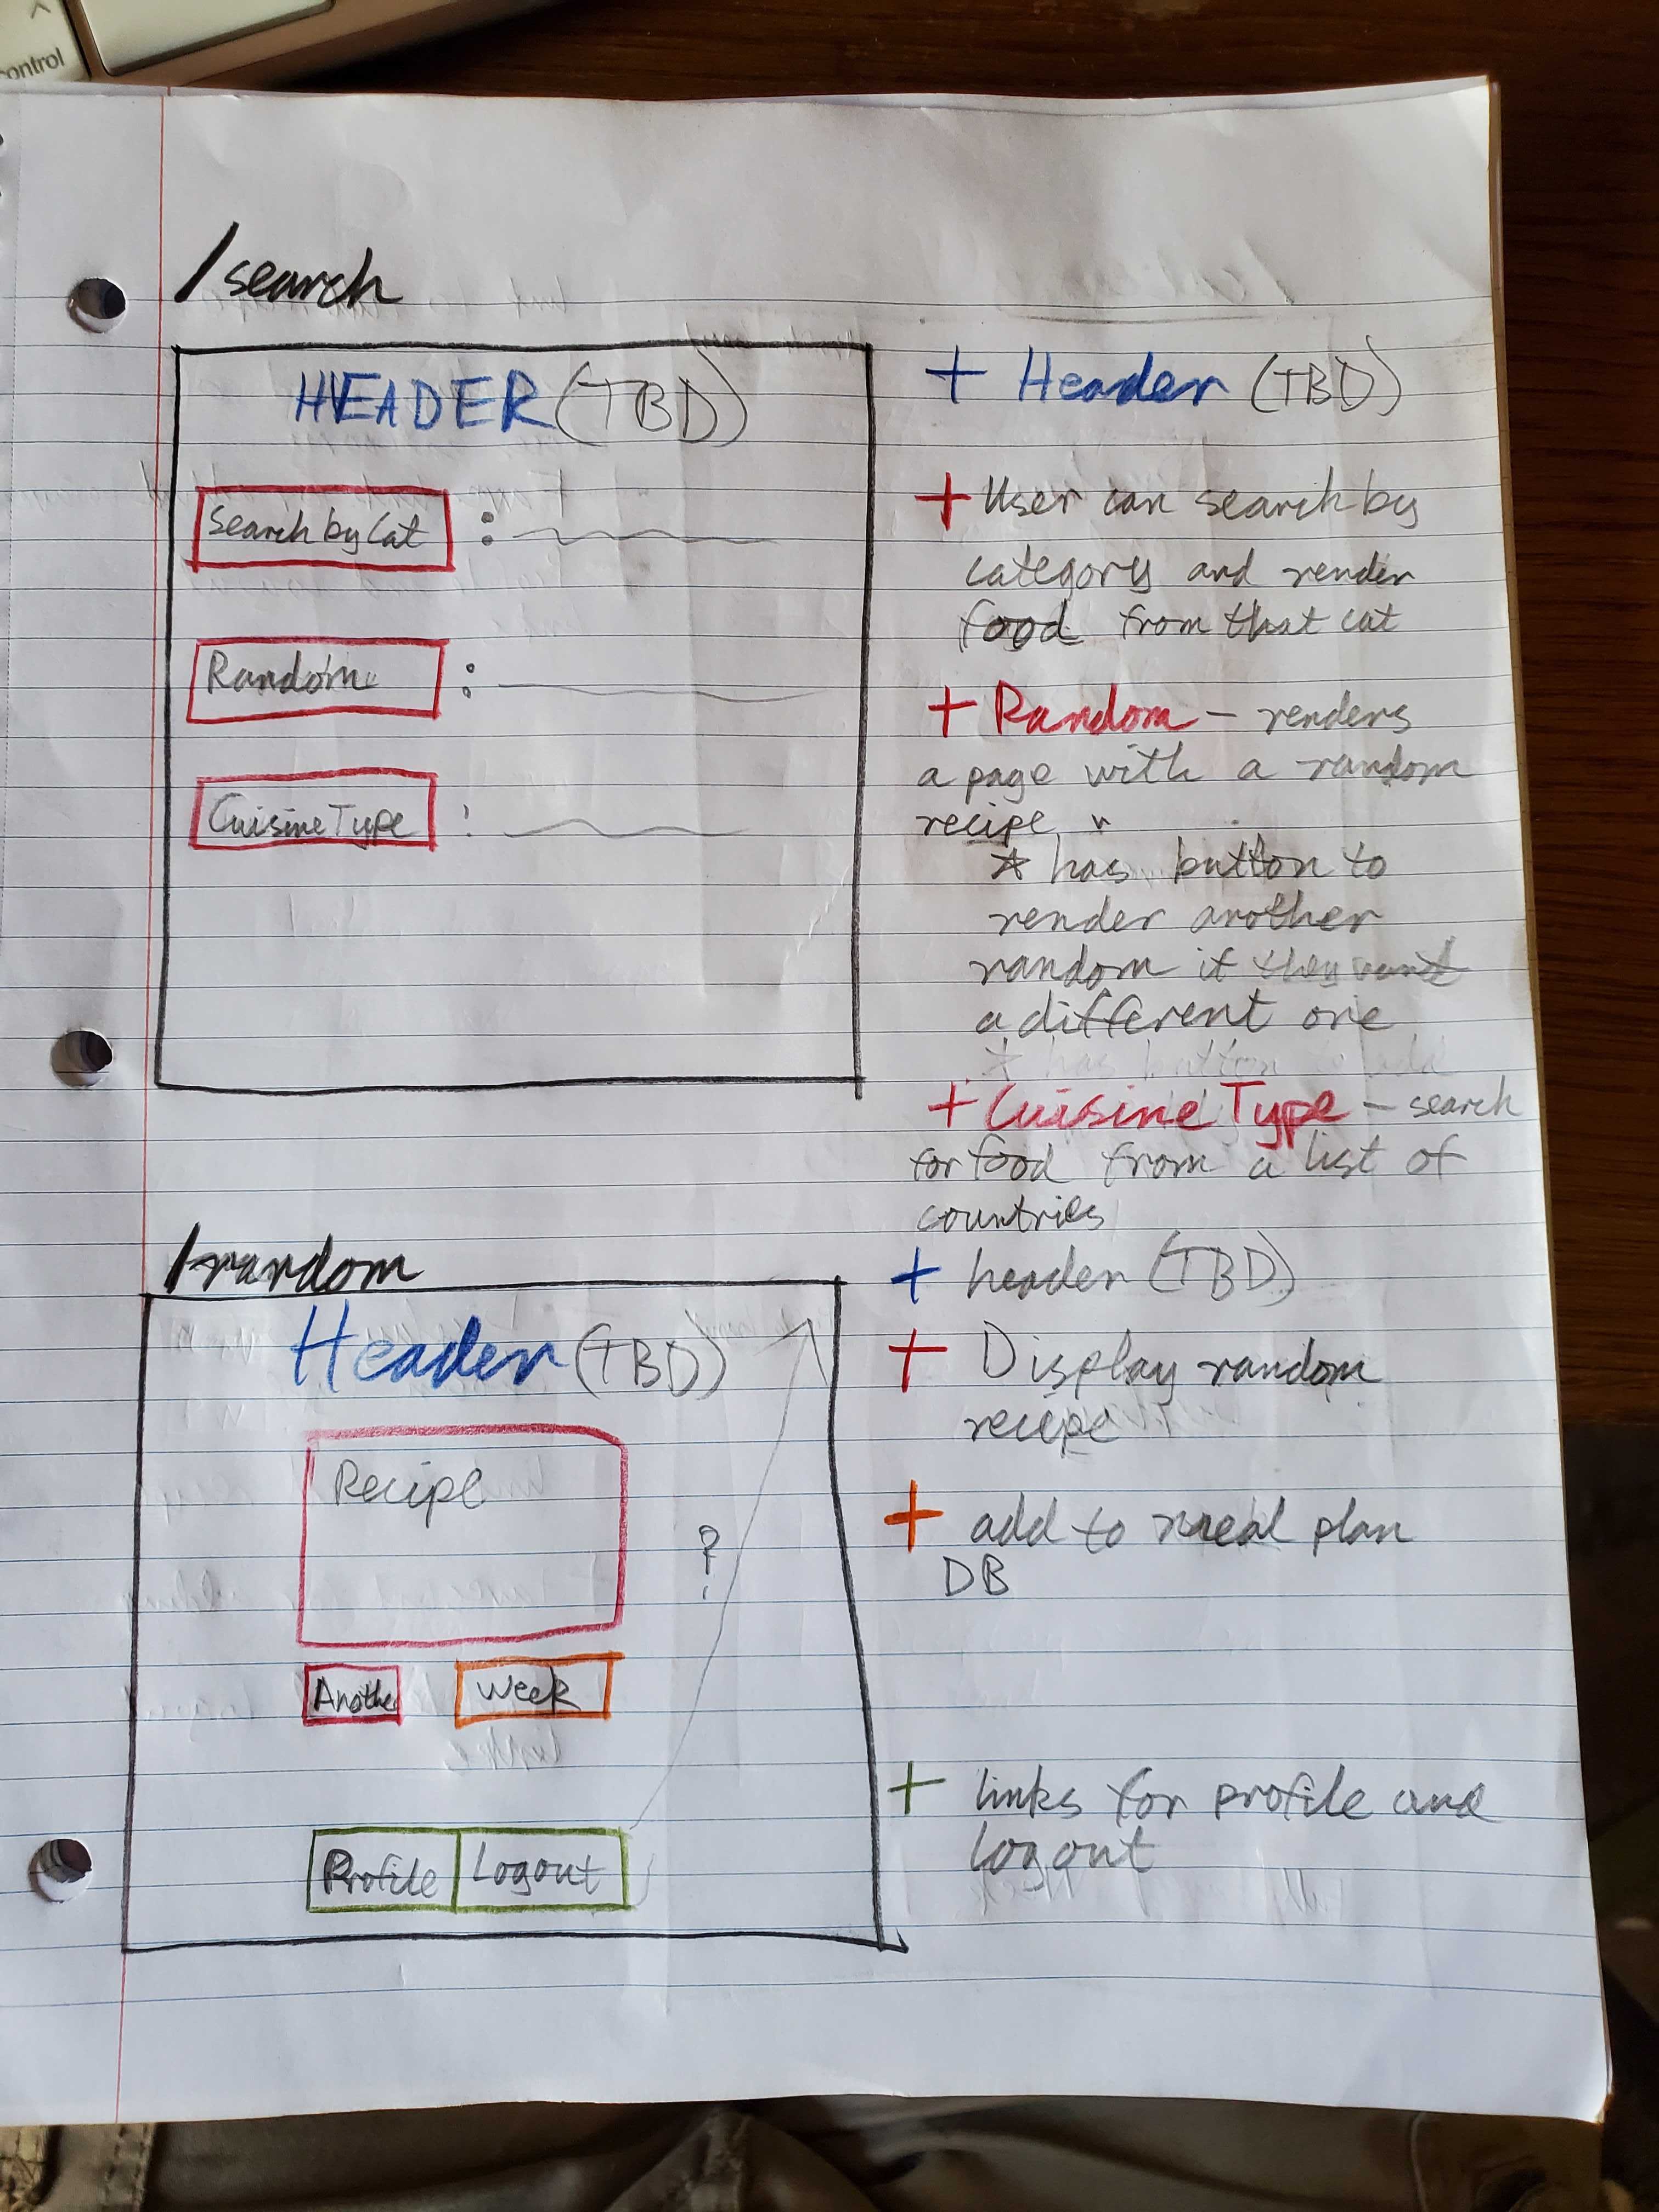 control
/search
HEADER (TBD)
Search by Cat :
Random :
Cuisine Type :
+ Header (TBD)
+ User can search by
category and render
food from that cat
+ Random - renders
a page with a random
recipe
* has button to
render another
random if they want
a different one
* has button to add
+ Cuisine Type - search
for food from a list of
countries
/random
Header (TBD)
Recipe
?
Another
Week
Profile
Logout
+ header (TBD)
+ Display random
recipe
+ add to meal plan
DB
+ links for profile and
logout